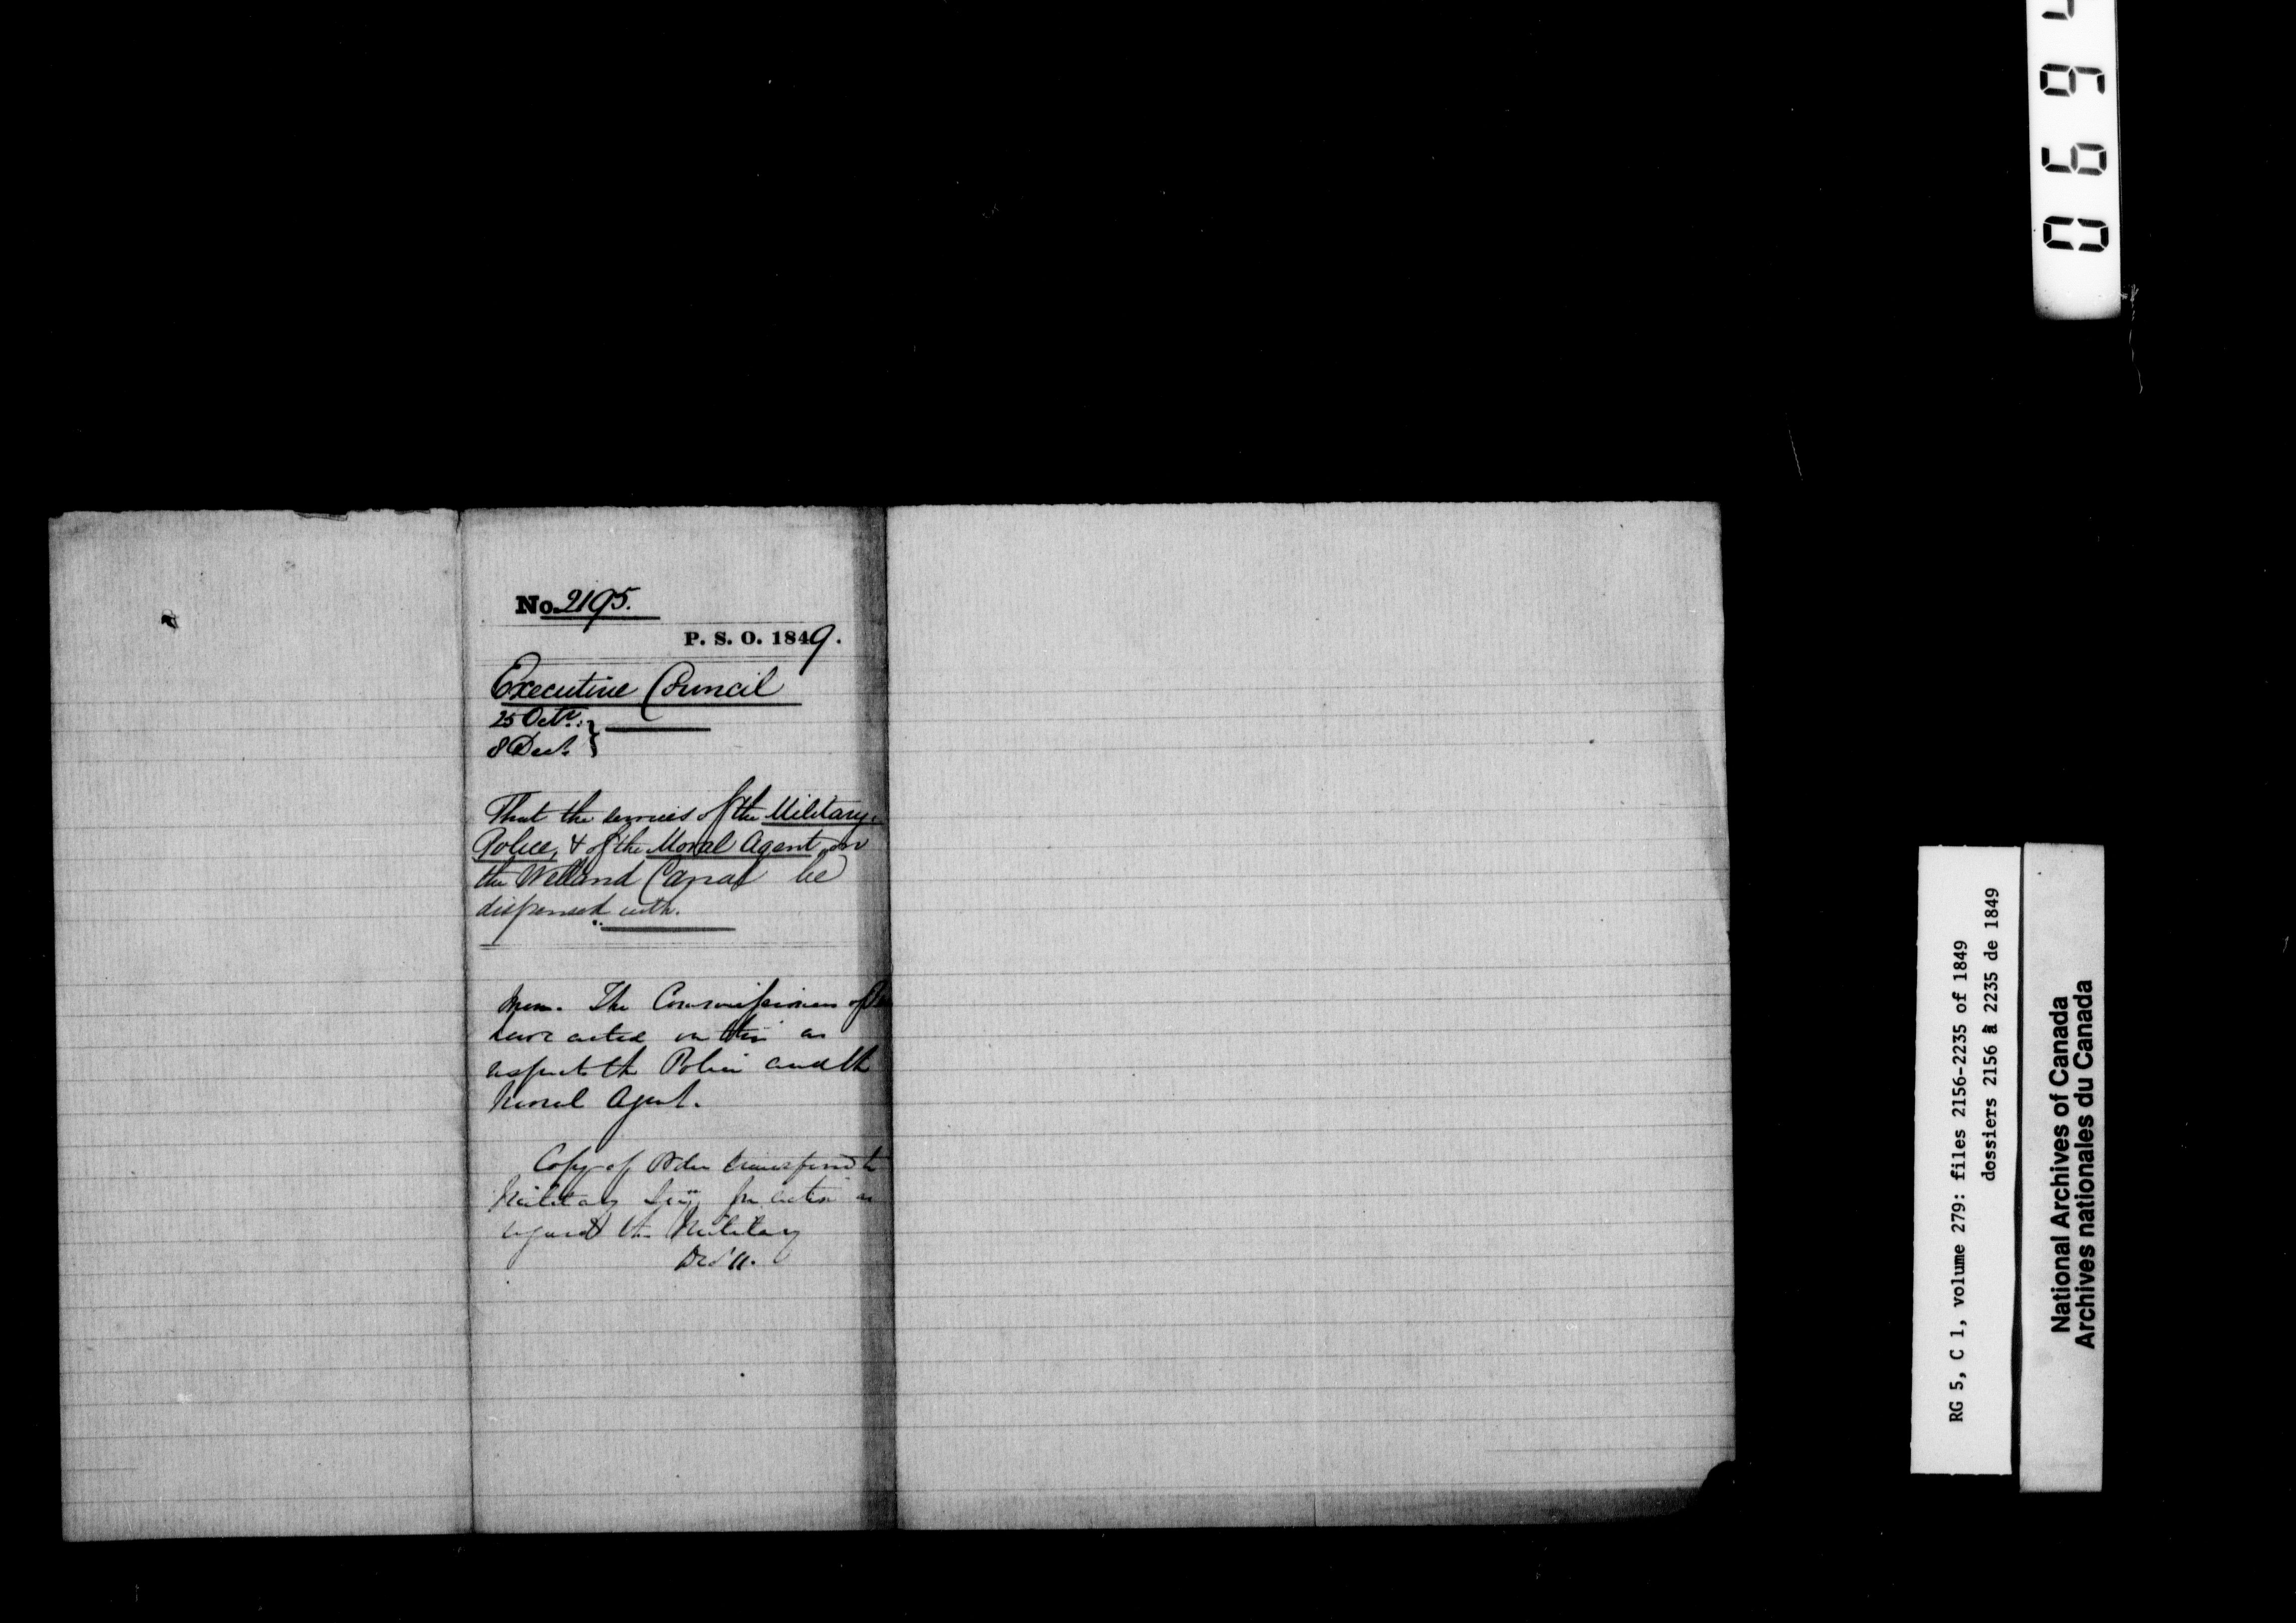 No. 2195.
P. S. O. 1849.
Executive Council
25 Octr.
8 Decr.
That the services of the Military
Police, & of the Moral Agent on
the Welland Canal be
dispensed with.
Mem. The Commissioners of
have acted on this as
respects the Police and the
Moral Agent.
Copy of Order transferred to
Military Secy for action as
regards the Military
Dec 11.
0694
RG 5, C 1, volume 279: files 2156-2235 of 1849
dossiers 2156 à 2235 de 1849
National Archives of Canada
Archives nationales du Canada